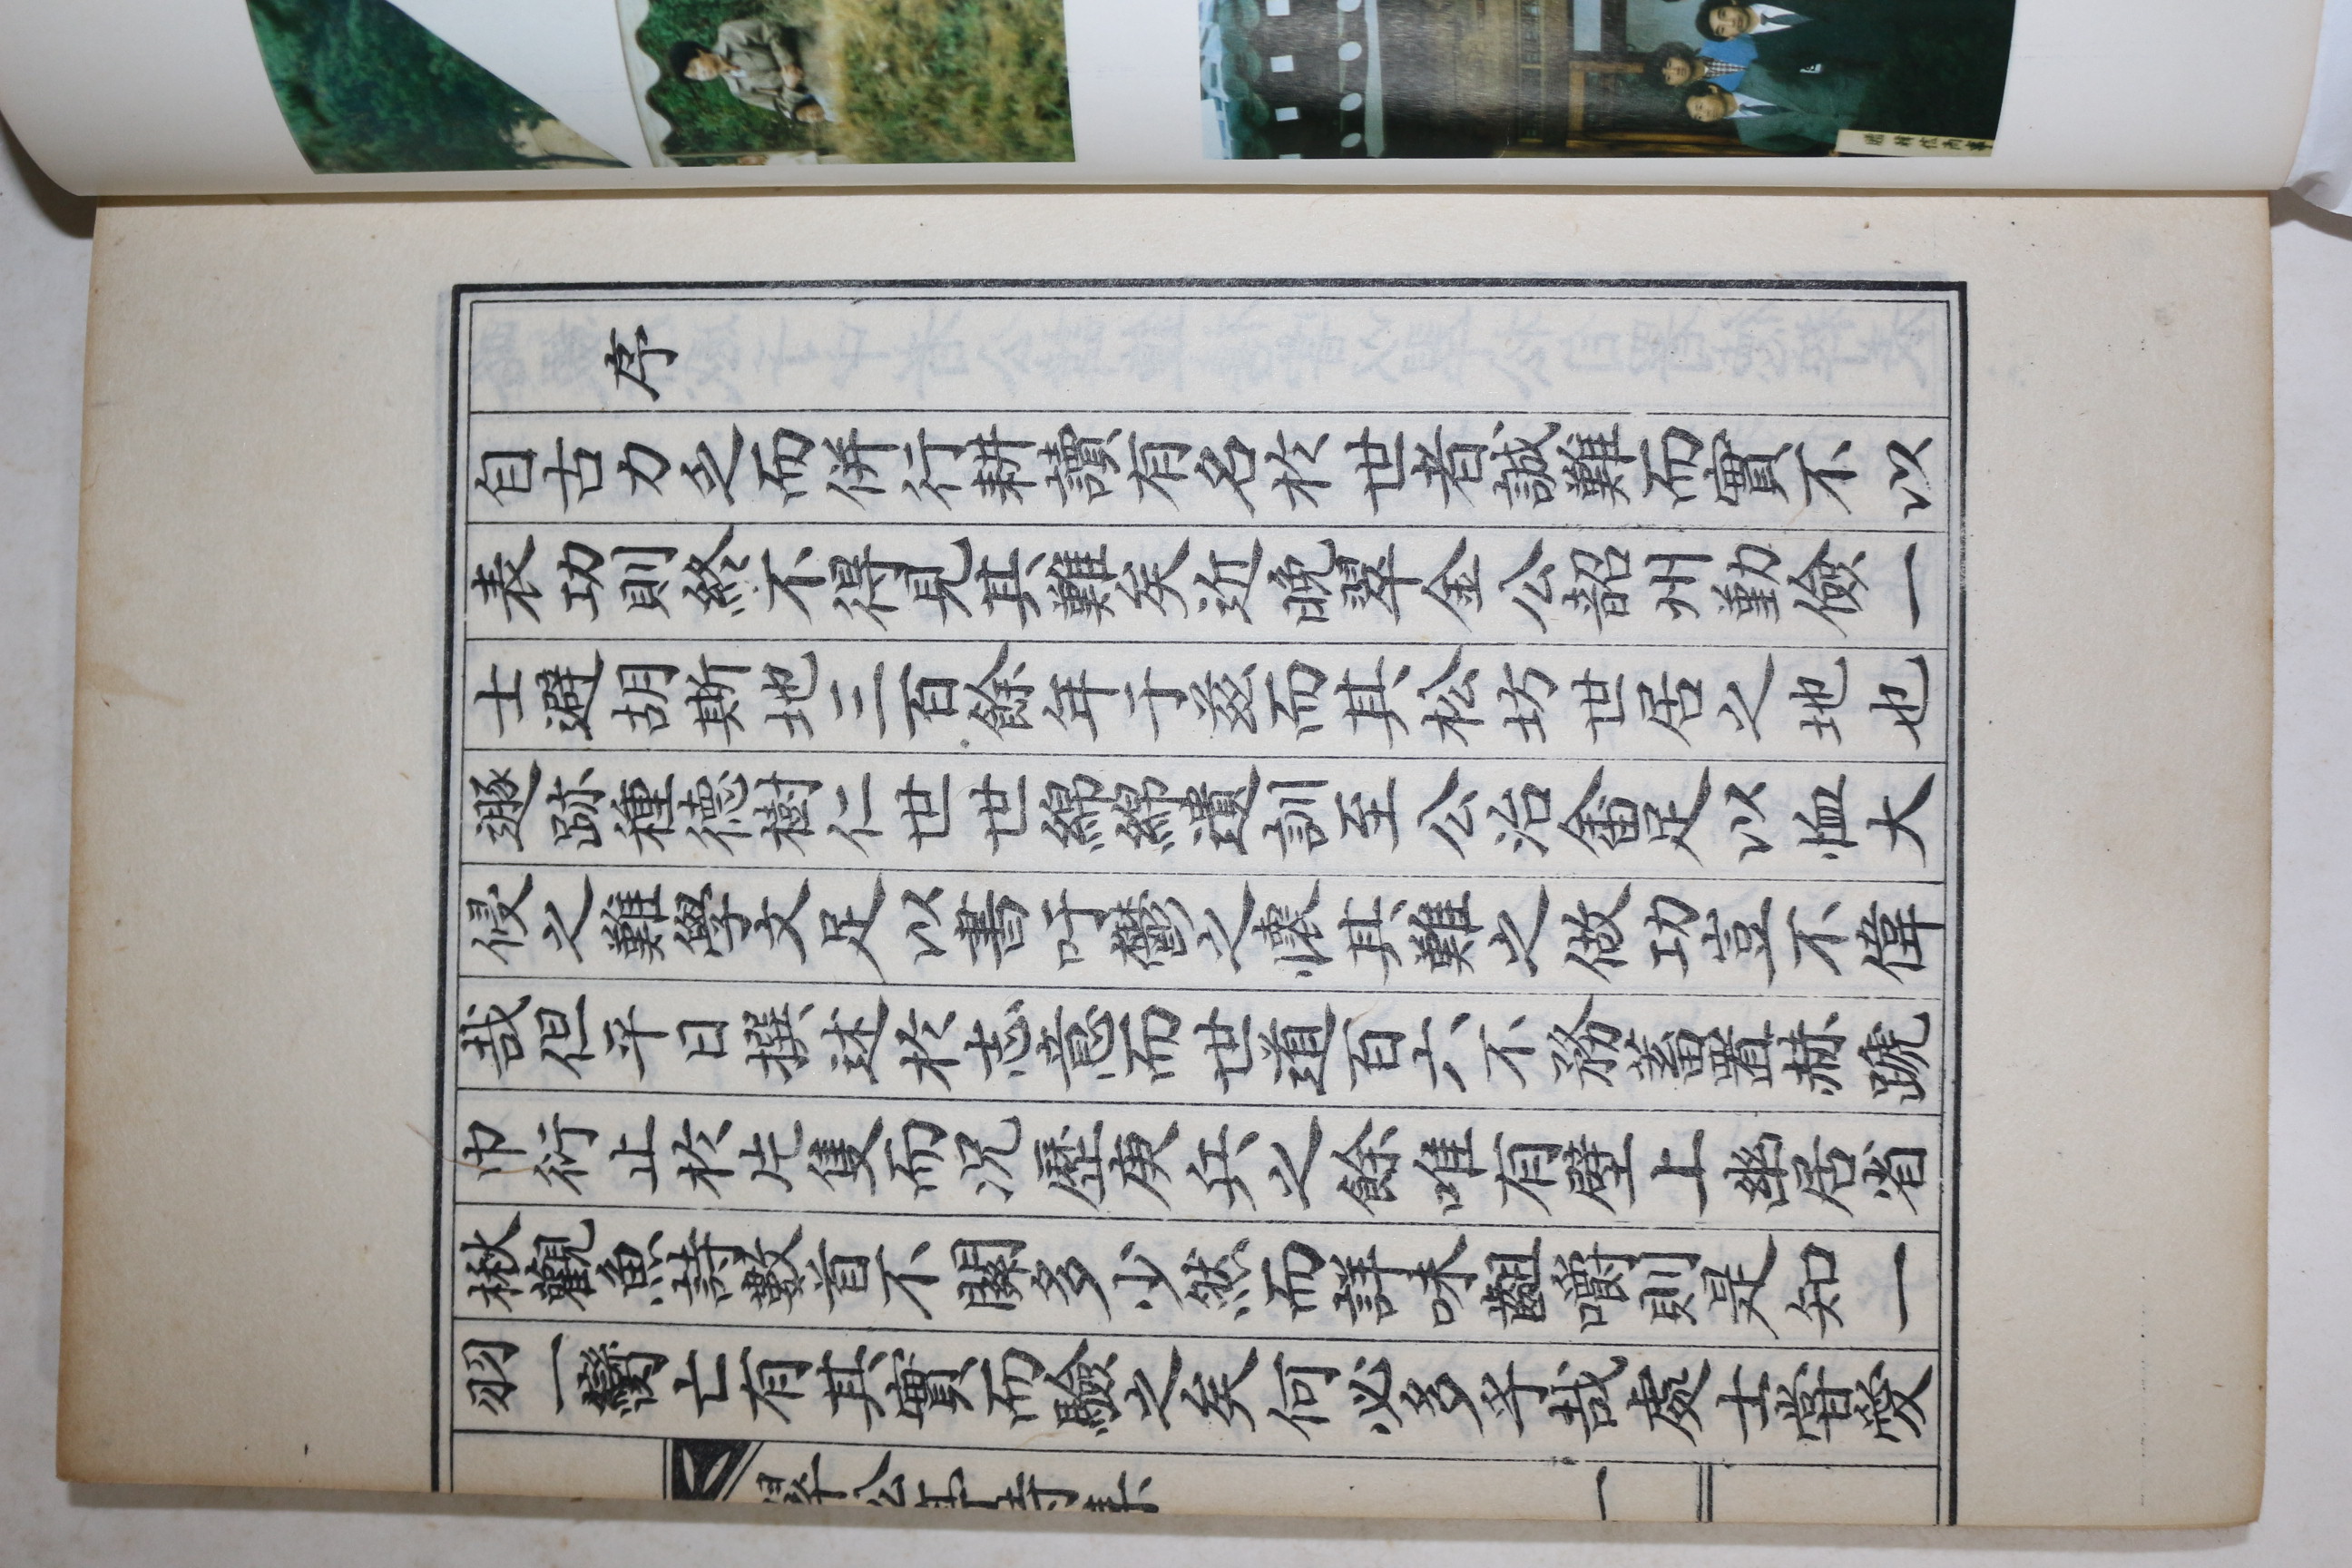 序
自古力乏而併行耕讀有名於世者誠難而實不以
表功則終不得見其難矣近晩翠金公韶州勤儉一
士避胡斯地三百餘年于玆而其松坊世居之地也
遯跡種德樹仁世世綿綿遺訓至公治畬足以恤大
侵之難學文足以書吁鬱之懷其難之做功豈不偉
哉但平日撰述於志意而世道百六不務蓄置赫蹏
巾衍止於片隻而况歷庚兵之餘唯有壁上幽居省
楸觀魚詩數首不關多少然而詳味齟嚼則是知一
羽一臠亡有其實而驗之矣何必多乎哉處士嘗愛
翠松亭詩集
一